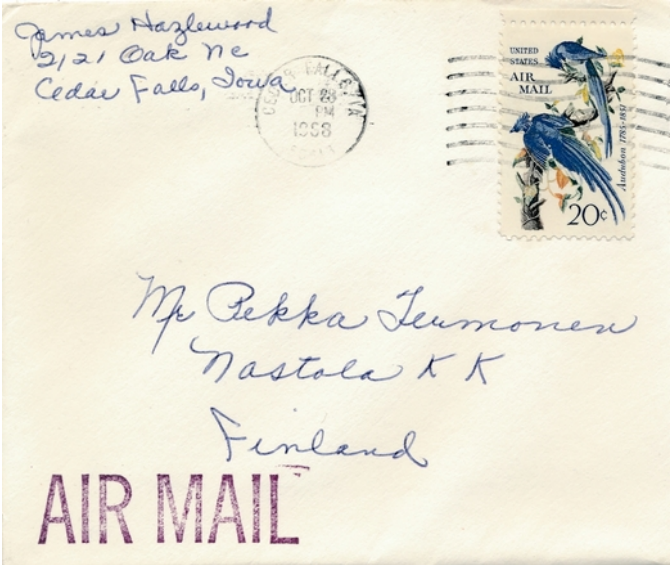 James Hazlewood
2121 Oak Ne
Cedar Falls, Iowa
CEDAR FALLS, IA
OCT 28
PM
1968
UNITED
STATES
AIR
MAIL
Audubon 1785-1851
20c
Mr Pekka Termonen
Nastola K K
Finland
AIR MAIL